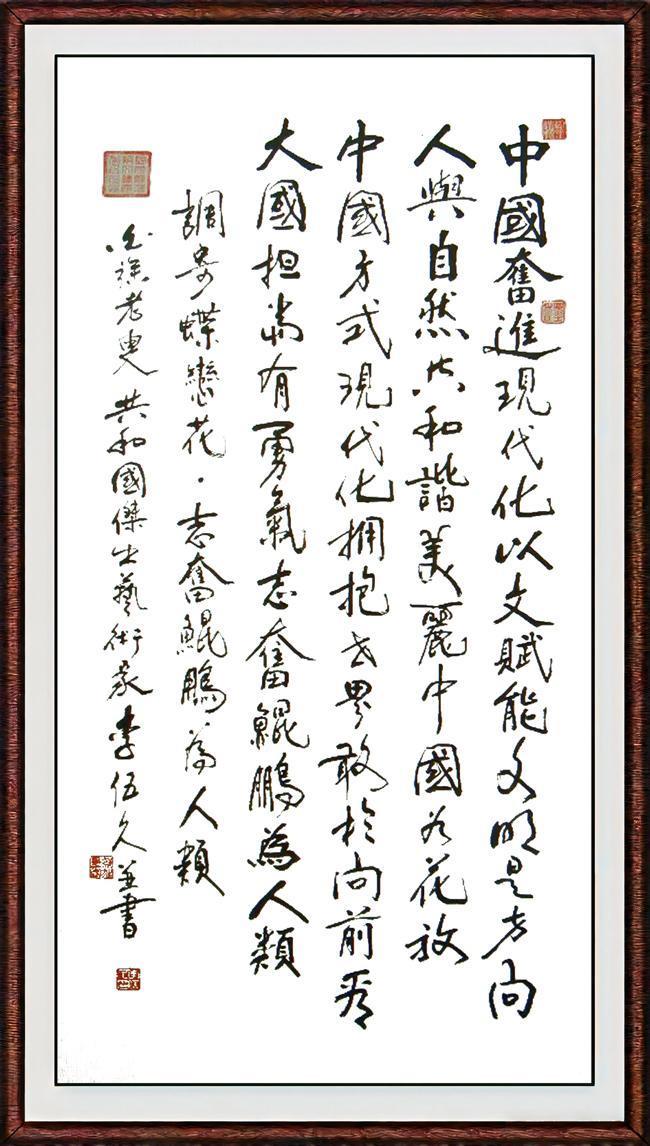 中國奮進現代化以文賦能文明是方向
人與自然共和諧美麗中國花放
中國方式現代化拥抱世界敢於向前看
大國担當有勇氣志奮鯤鵬為人類
調寄蝶戀花·志奮鯤鵬為人類
老叟共和國傑出藝術家李伍久並書